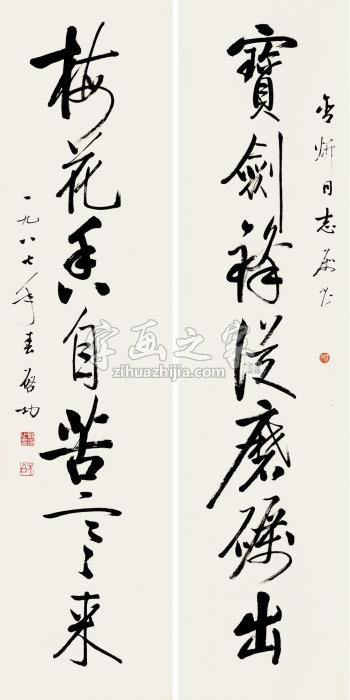 同志属书
寶劍鋒從磨礪出
梅花香自苦寒来
一九八七年春 启功
字画之家
zihuazhijia.com